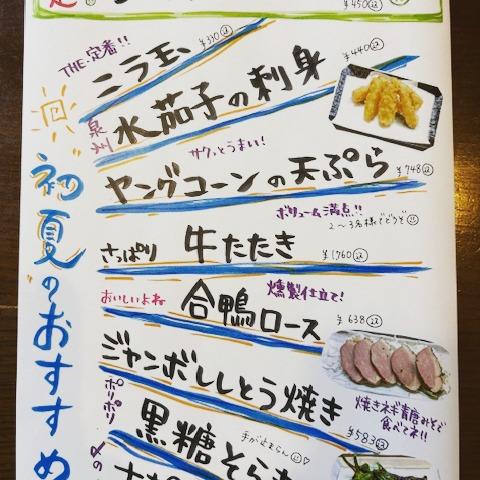 ¥450込
THE・定番!!
ニラ玉、
¥330込
泉州
水茄子の刺身
¥440込
サクッとうまい!
ヤングコーンの天ぷら
¥748込
ボリューム満点!!
2〜3名様でどうぞ
さっぱり
牛たたき
¥1760込
おいしいよね
燻製仕立て!
合鴨ロース
¥638込
ジャンボししとう焼き
¥583込
焼きネギ青唐みそで
食べてネ!!
ポリポリ
黒糖そらま
手が止まらん
〆の
初夏のおすすめ